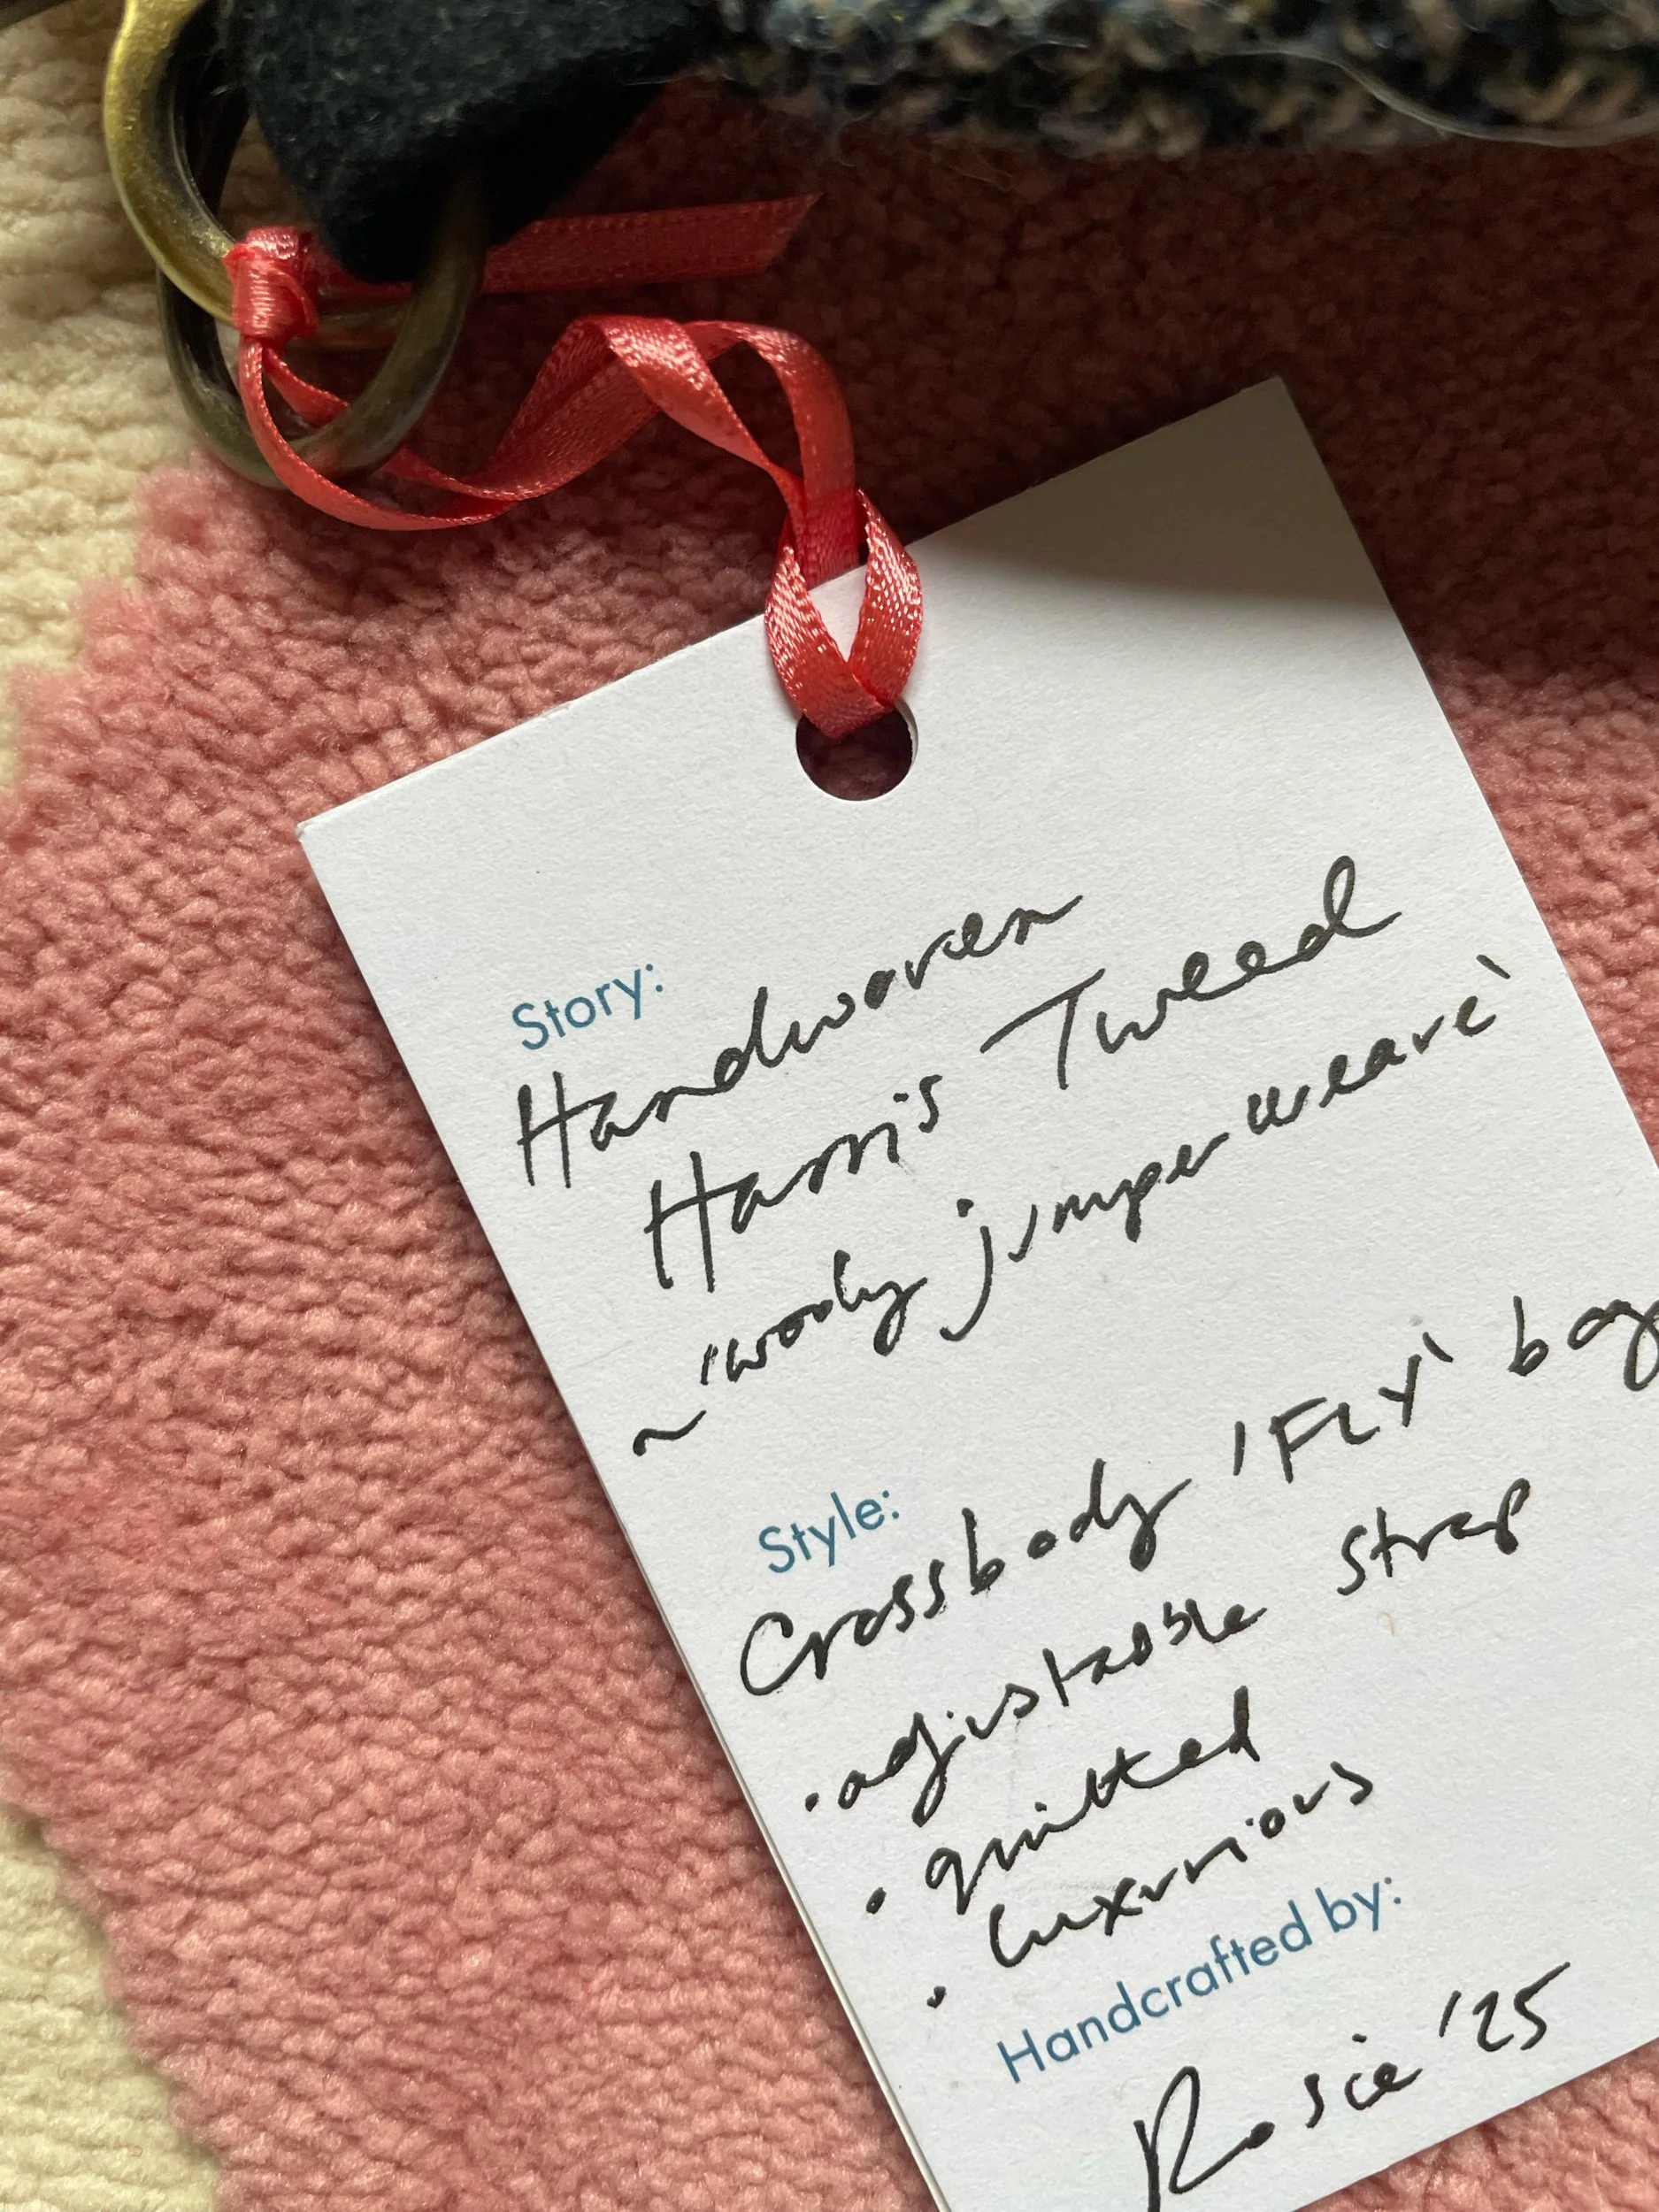 Story:
Handwoven
Harris Tweed
~ 'wooly jumper weave'
Style:
Crossbody 'FLY' bag
• adjustable strap
• quilted
• luxurious
Handcrafted by:
Rosie '25